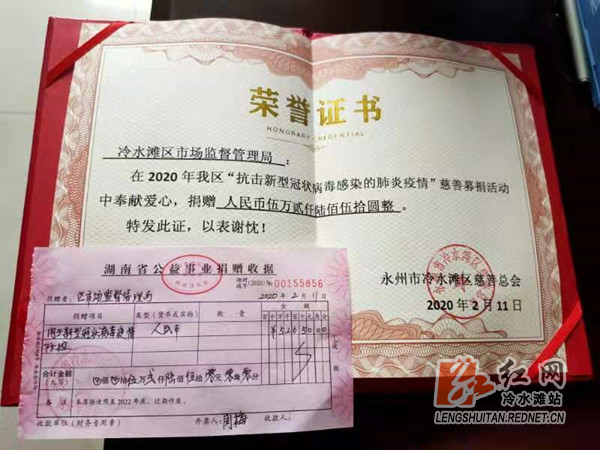 荣誉证书
HONORARY CREDENTIAL
冷水滩区市场监督管理局：
在2020年我区“抗击新型冠状病毒感染的肺炎疫情”慈善募捐活动
中奉献爱心，捐赠 人民币伍万贰仟陆佰伍拾圆整。
特发此证，以表谢忱！
永州市冷水滩区慈善总会
2020年2月11日
湖南省公益事业捐赠收据
(2020) № 00155856
捐赠者：区市场监督管理局
2020年2月11日
捐赠项目
类型（货币或实物）
数量
金额
用于新型冠状病毒疫情
防控
人民币
¥5265000
合计金额
（大写）
佰拾伍万贰仟陆佰伍拾零元零角零分
备注：本票据使用至2022年底，过期作废。
收款单位（财务专用章）
开票人：周梅
收款人：
红网
冷水滩站
LENGSHUITAN.REDNET.CN